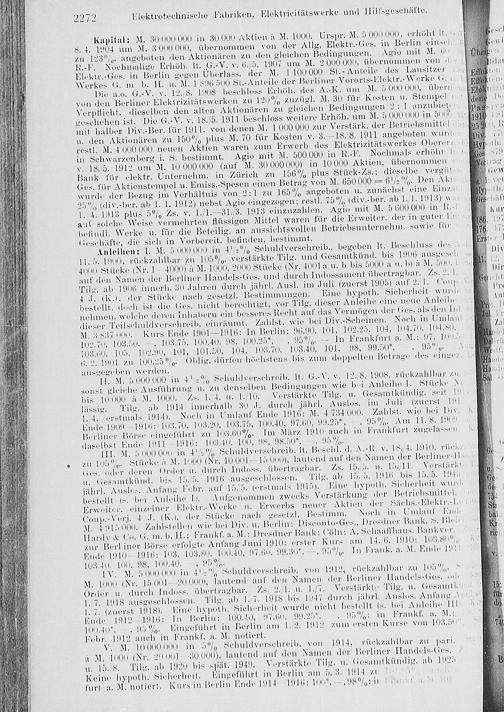 2272 Elektrotechnische Fabriken, Elektricitätswerke und Hilfsgeschäfte.
Kapital: M. 30 000 000 in 30 000 Aktien à M. 1000. Urspr. M. 5 000 000, erhöht lt.
8. 4. 1904 um M. 3 000 000, übernommen von der Allg. Elektr.-Ges. in Berlin
zu 123%, angeboten den Aktionären zu den gleichen Bedingungen. Agio mit M.
R.-F. Nochmalige Erhöh. lt. G.-V. v. 6./5. 1907 um M. 2 000 000, übernommen von
Elektr.-Ges. in Berlin gegen Überlass. der M. 1 100 000 St.-Anteile der Lausitzer
Werkes G. m. b. H. u. M. 1 896 500 St.-Anteile der Berliner Vororts-Elektr.-Werke
Die a.o. G.-V. v. 12./8. 1908 beschloss Erhöh. des A.-K. um M. 5 000 000,
von den Berliner Elektrizitätswerken zu 120% zuzügl. M. 30 für Kosten u. Stempel
Verpflicht. dieselben den alten Aktionären zu gleichen Bedingungen 2 : 1
geschehen ist. Die G.-V. v. 18./5. 1911 beschloss weitere Erhöh. um M. 5 000 000 in
mit halber Div.-Ber. für 1911, von denen M. 1 000 000 zur Verstärk. der Betriebsmittel
u. den Aktionären zu 150% plus M. 70 für Kosten v. 3.—18./8. 1911 angeboten
restl. M. 4 000 000 neuen Aktien waren zum Erwerb des Elektrizitätswerkes
in Schwarzenberg i. S. bestimmt. Agio mit M. 500 000 in R.-F. Nochmals erhöht
v. 18./5. 1912 um M. 10 000 000 (auf M. 30 000 000) in 10 000 Aktien, übernommen
Bank für elektr. Unternehm. in Zürich zu 156% plus Stück-Zs.; dieselbe
Ges. für Aktienstempel u. Emiss.-Spesen einen Betrag von M. 650 000 = 6½%. Den
wurde der Bezug im Verhältnis von 2 : 1 zu 165% angeboten u. zunächst eine
25% (div.-ber. ab 1./1. 1912) nebst Agio eingezogen; restl. 75% (div.-ber. ab 1./1. 1913)
1./4. 1913 plus 5% Zs. v. 1./1.—31./3. 1913 einzuzahlen. Agio mit M. 5 600 000 in
auf solche Weise vermehrten flüssigen Mittel waren für die Erweiter. der in guter
befindl. Werke u. für die Beteilig. an aussichtsvollen Betriebsunternehm. sowie für
Geschäfte, die sich in Vorbereit. befinden, bestimmt.
Anleihen: I. M. 5 000 000 in 4½% Schuldverschreib., begeben lt. Beschluss des
11./5. 1900, rückzahlbar zu 105% verstärkte Tilg. und Gesamtkünd. bis 1906
4000 Stücke (Nr. 1—4000) à M. 1000, 2000 Stücke (Nr. 4001 a u. b bis 5000 a u. b) à M. 500,
auf den Namen der Berliner Handels-Ges. und durch Indossament übertragbar. Zs.
Tilg. ab 1906 innerh. 30 Jahren durch jährl. Ausl. im Juli (zuerst 1905) auf 2./1.
4 J. (K.). der Stücke nach gesetzl. Bestimmungen. Eine hypoth. Sicherheit
bestellt, doch ist die Ges. nicht berechtigt, vor Tilg. dieser Anleihe eine neue
nehmen, welche deren Inhabern ein besseres Recht auf das Vermögen der Ges. als den
dieser Teilschuldverschreib. einräumt. Zahlst. wie bei Div.-Scheinen. Noch in
M. 3 837 000. Kurs Ende 1901—1916: In Berlin: 96.90, 101, 102.25, 104, 104.70, 104.80,
102.75, 103.50, —, 103.75, 100.40, 98, 100.25*, —, 95%. — In Frankf. a. M.: 97,
103.60, 105, 102.90, 101, 101.50, 104, 103.70, 103.40, 101, 98, 99.50*,
6./2. 1901 zu 100.25%. Oblig. dürfen höchstens bis zum doppelten Betrage des
ausgegeben werden.
II. M. 5 000 000 in 4½% Schuldverschreib. lt. G.-V. v. 12./8. 1908, rückzahlbar
sonst gleiche Ausführung u. zu denselben Bedingungen wie bei Anleihe I. Stücke
bis 10 000 à M. 1000. Zs. 1./4. u. 1./10. Verstärkte Tilg. u. Gesamtkündig. seit
lässig. Tilg. ab 1914 innerhalb 30 J. durch jährl. Auslos. im Juli (zuerst
1./4. erstmals 1914). Noch in Umlauf Ende 1916: M. 4 734 000. Zahlst. wie bei
Ende 1909—1916: 103.70, 103.20, 103.75, 100.40, 97.60, 99.25*, —, 95%. Am 11./8. 190
Berliner Börse eingeführt zu 103.60%. Im März 1910 auch in Frankfurt
daselbst Ende 1911—1916: 103.40, 100, 98, 98.50*, —, 95%.
III. M. 5 000 000 in 4½% Schuldverschreib. lt. Beschl. d. A.-R. v. 18./4. 1910,
zu 105%. Stücke à M. 1000 (Nr. 10 001—15 000), lautend auf den Namen der Berliner
Ges. oder deren Order u. durch Indoss. übertragbar. Zs. 15./5. u. 15./11. Verstärkte
u. Gesamtkünd. bis 15./5. 1916 ausgeschlossen. Tilg. ab 15./5. 1916 bis 15./5. 1945
jährl. Auslos. Anfang Febr. auf 15./5. (erstmals 1915). Eine hypoth. Sicherheit
bestellt (s. bei Anleihe I). Aufgenommen zwecks Verstärkung der Betriebsmittel,
Erweiter. einzelner Elektr.-Werke u. Erwerbs neuer Aktien der Sächs. Elektr.
Comp. Verj. 4 J. (K.), der Stücke nach gesetzl. Bestimm. Noch in Umlauf
M. 4 915 000. Zahlstellen wie bei Div. u. Berlin: Disconto-Ges., Dresdner Bank, S.
Hardy & Co. G. m. b. H.; Frankf. a. M.: Dresdner Bank; Cöln: A. Schaaffhaus. Bankver.
zur Berliner Börse erfolgte Anfang Juni 1910; erster Kurs am 14./6. 1910: 103.80%
Ende 1910—1916: 103, 103.80, 100.40, 97.60, 99.30*, —, 95%. In Frank. a. M. Ende
103.40, 100, 98, 100.40, —, 95%.
IV. M. 5 000 000 in 4½% Schuldverschreib. von 1912, rückzahlbar zu 105%.
M. 1000 (Nr. 15 001—20 000), lautend auf den Namen der Berliner Handels-Ges.
Order u. durch Indoss. übertragbar. Zs. 2./1. u. 1./7. Verstärkt. Tilg. u. Gesamtk
1./7. 1918 ausgeschlossen. Tilg. ab 1./7. 1918 bis 1947 durch jährl. Auslos. Anfang
1./7. (zuerst 1918). Eine hypoth. Sicherheit wurde nicht bestellt (s. bei Anleihe
Ende 1912—1916: In Berlin: 100.40, 97.60, 99.25*, —, 95%; in Frankf. a. M.:
100.40*, —, 95%. Eingeführt in Berlin am 1./2. 1912 zum ersten Kurse von
Febr. 1912 auch in Frankf. a. M. notiert.
V. M. 10 000 000 in 5% Schuldverschreib. von 1914, rückzahlbar zu pari.
à M. 1000 (Nr. 20 001—30 000), lautend auf den Namen der Berliner Handels-Ges.
u. 15./8. Tilg. ab 1920 bis spät. 1949. Verstärkte Tilg. u. Gesamtkündig. ab 1925
Keine hypoth. Sicherheit. Eingeführt in Berlin am 5./3. 1914 zu
furt a. M. notiert. Kurs in Berlin Ende 1914—1916: 100*, —, 98%; in